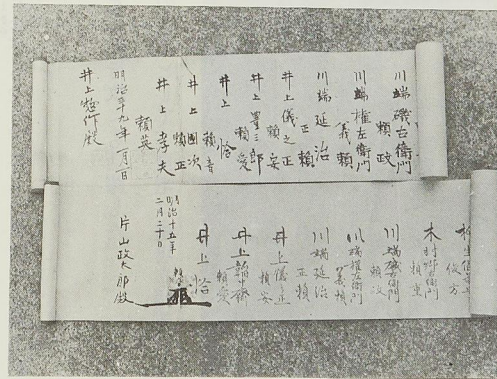 川端磯右衛門
頼政
川端権左衛門
義頼
川端延治
正頼
井上儀之正
頼安
井上墨三郎
頼愛
井上恰
井上国次
頼正
井上孝夫
頼英
明治 九年一月一日
井上 殿
俊方
木村 衛門
頼重
川端磯右衛門
頼政
川端権左衛門
義頼
川端延治
正頼
井上儀正
頼安
井上
頼愛
井上恰
明治十五年
二月二十日
片山政太郎殿